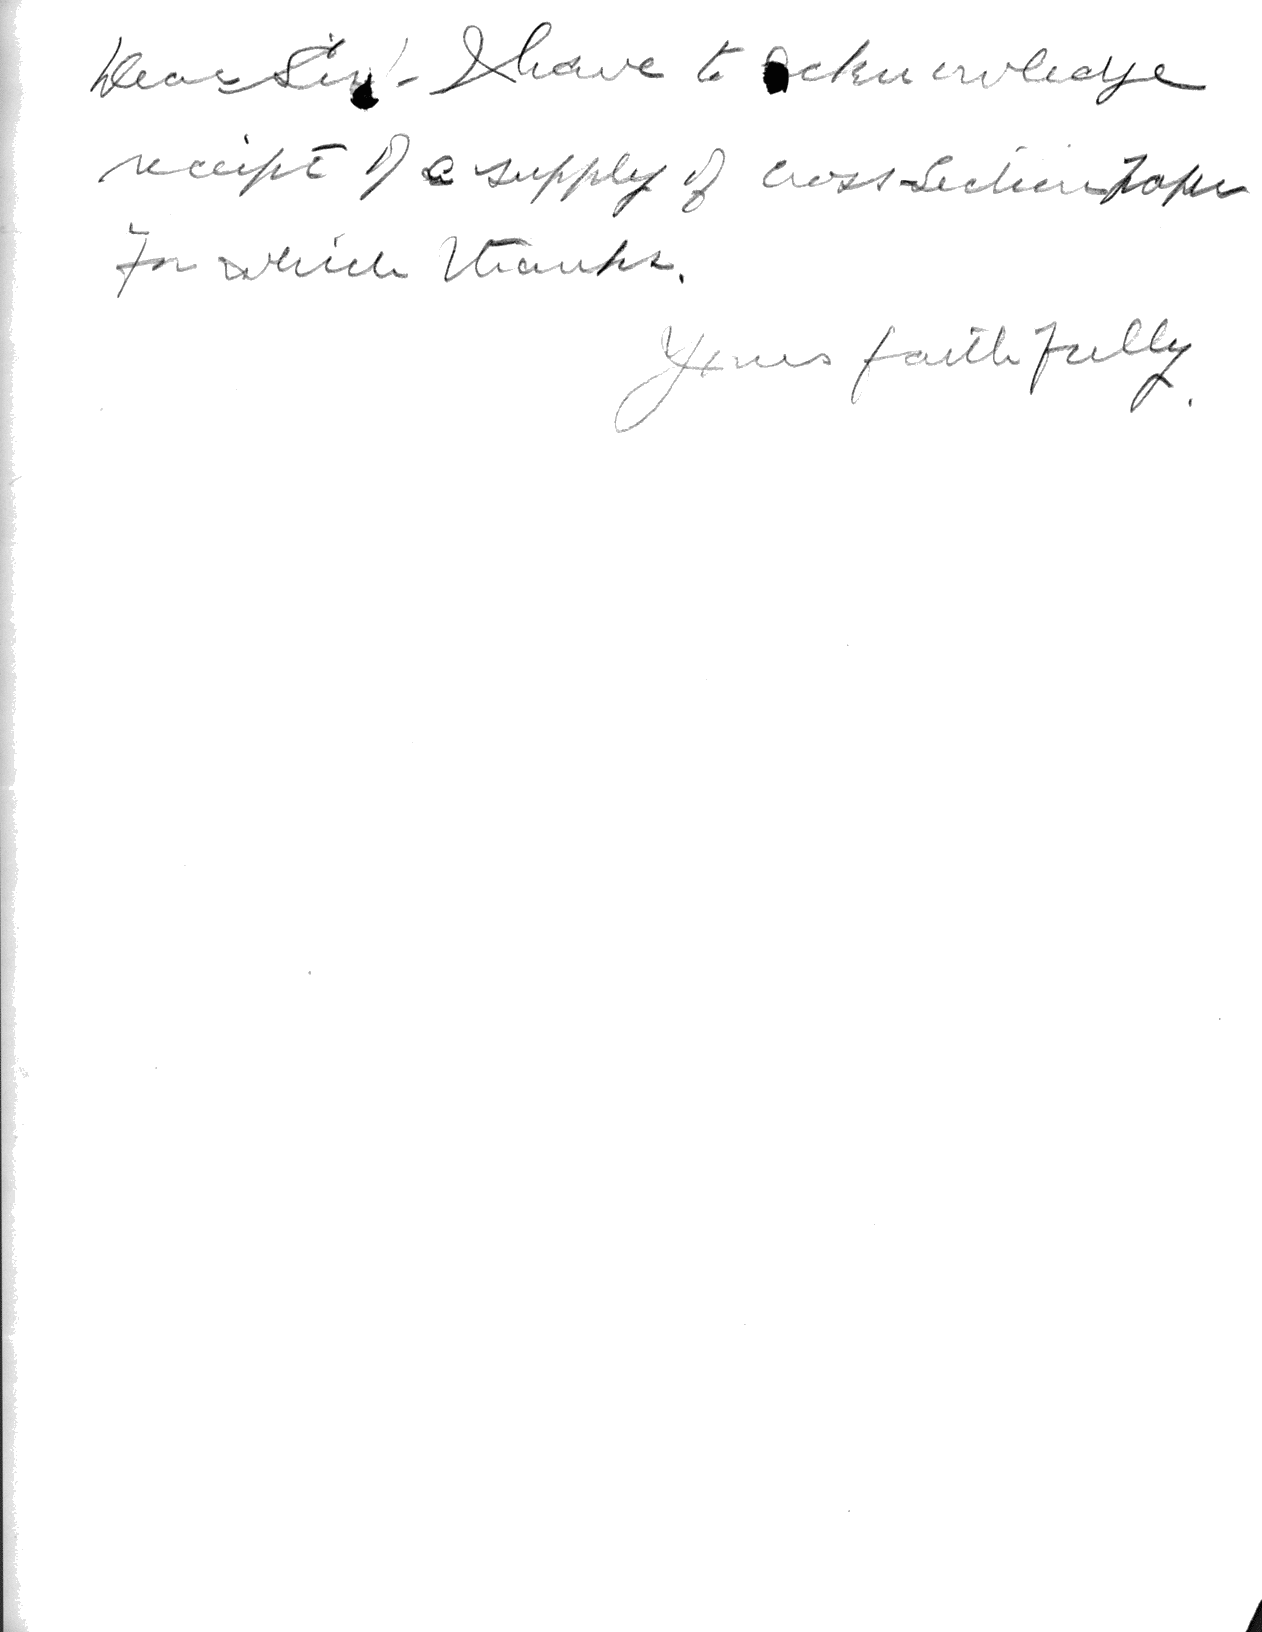 Dear Sir! - I have to acknowledge
receipt of a supply of cross section paper
for which thanks.
Yours faithfully.